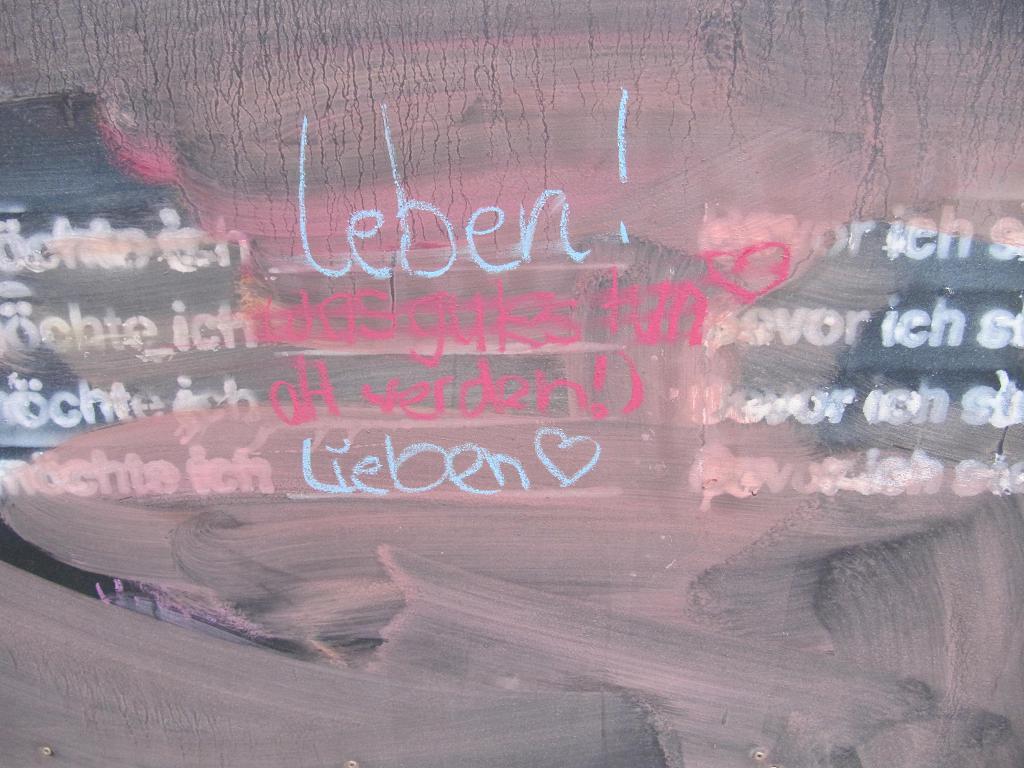 leben!
öchte ich bevor ich s
öchte ich was gutes tun bevor ich st
öchte ich alt verden!) bevor ich st
möchte ich Lieben bevor ich ste